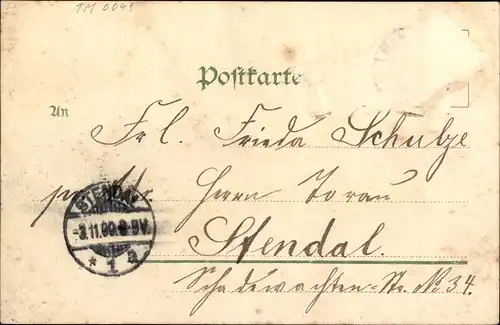 TM 0049
Postkarte
An
Frl. Frieda Schulze
Herrn Torau
Stendal.
Schadewachten-Str. No 34.
STENDAL
-3.11.00.8-9V.
* 1 a